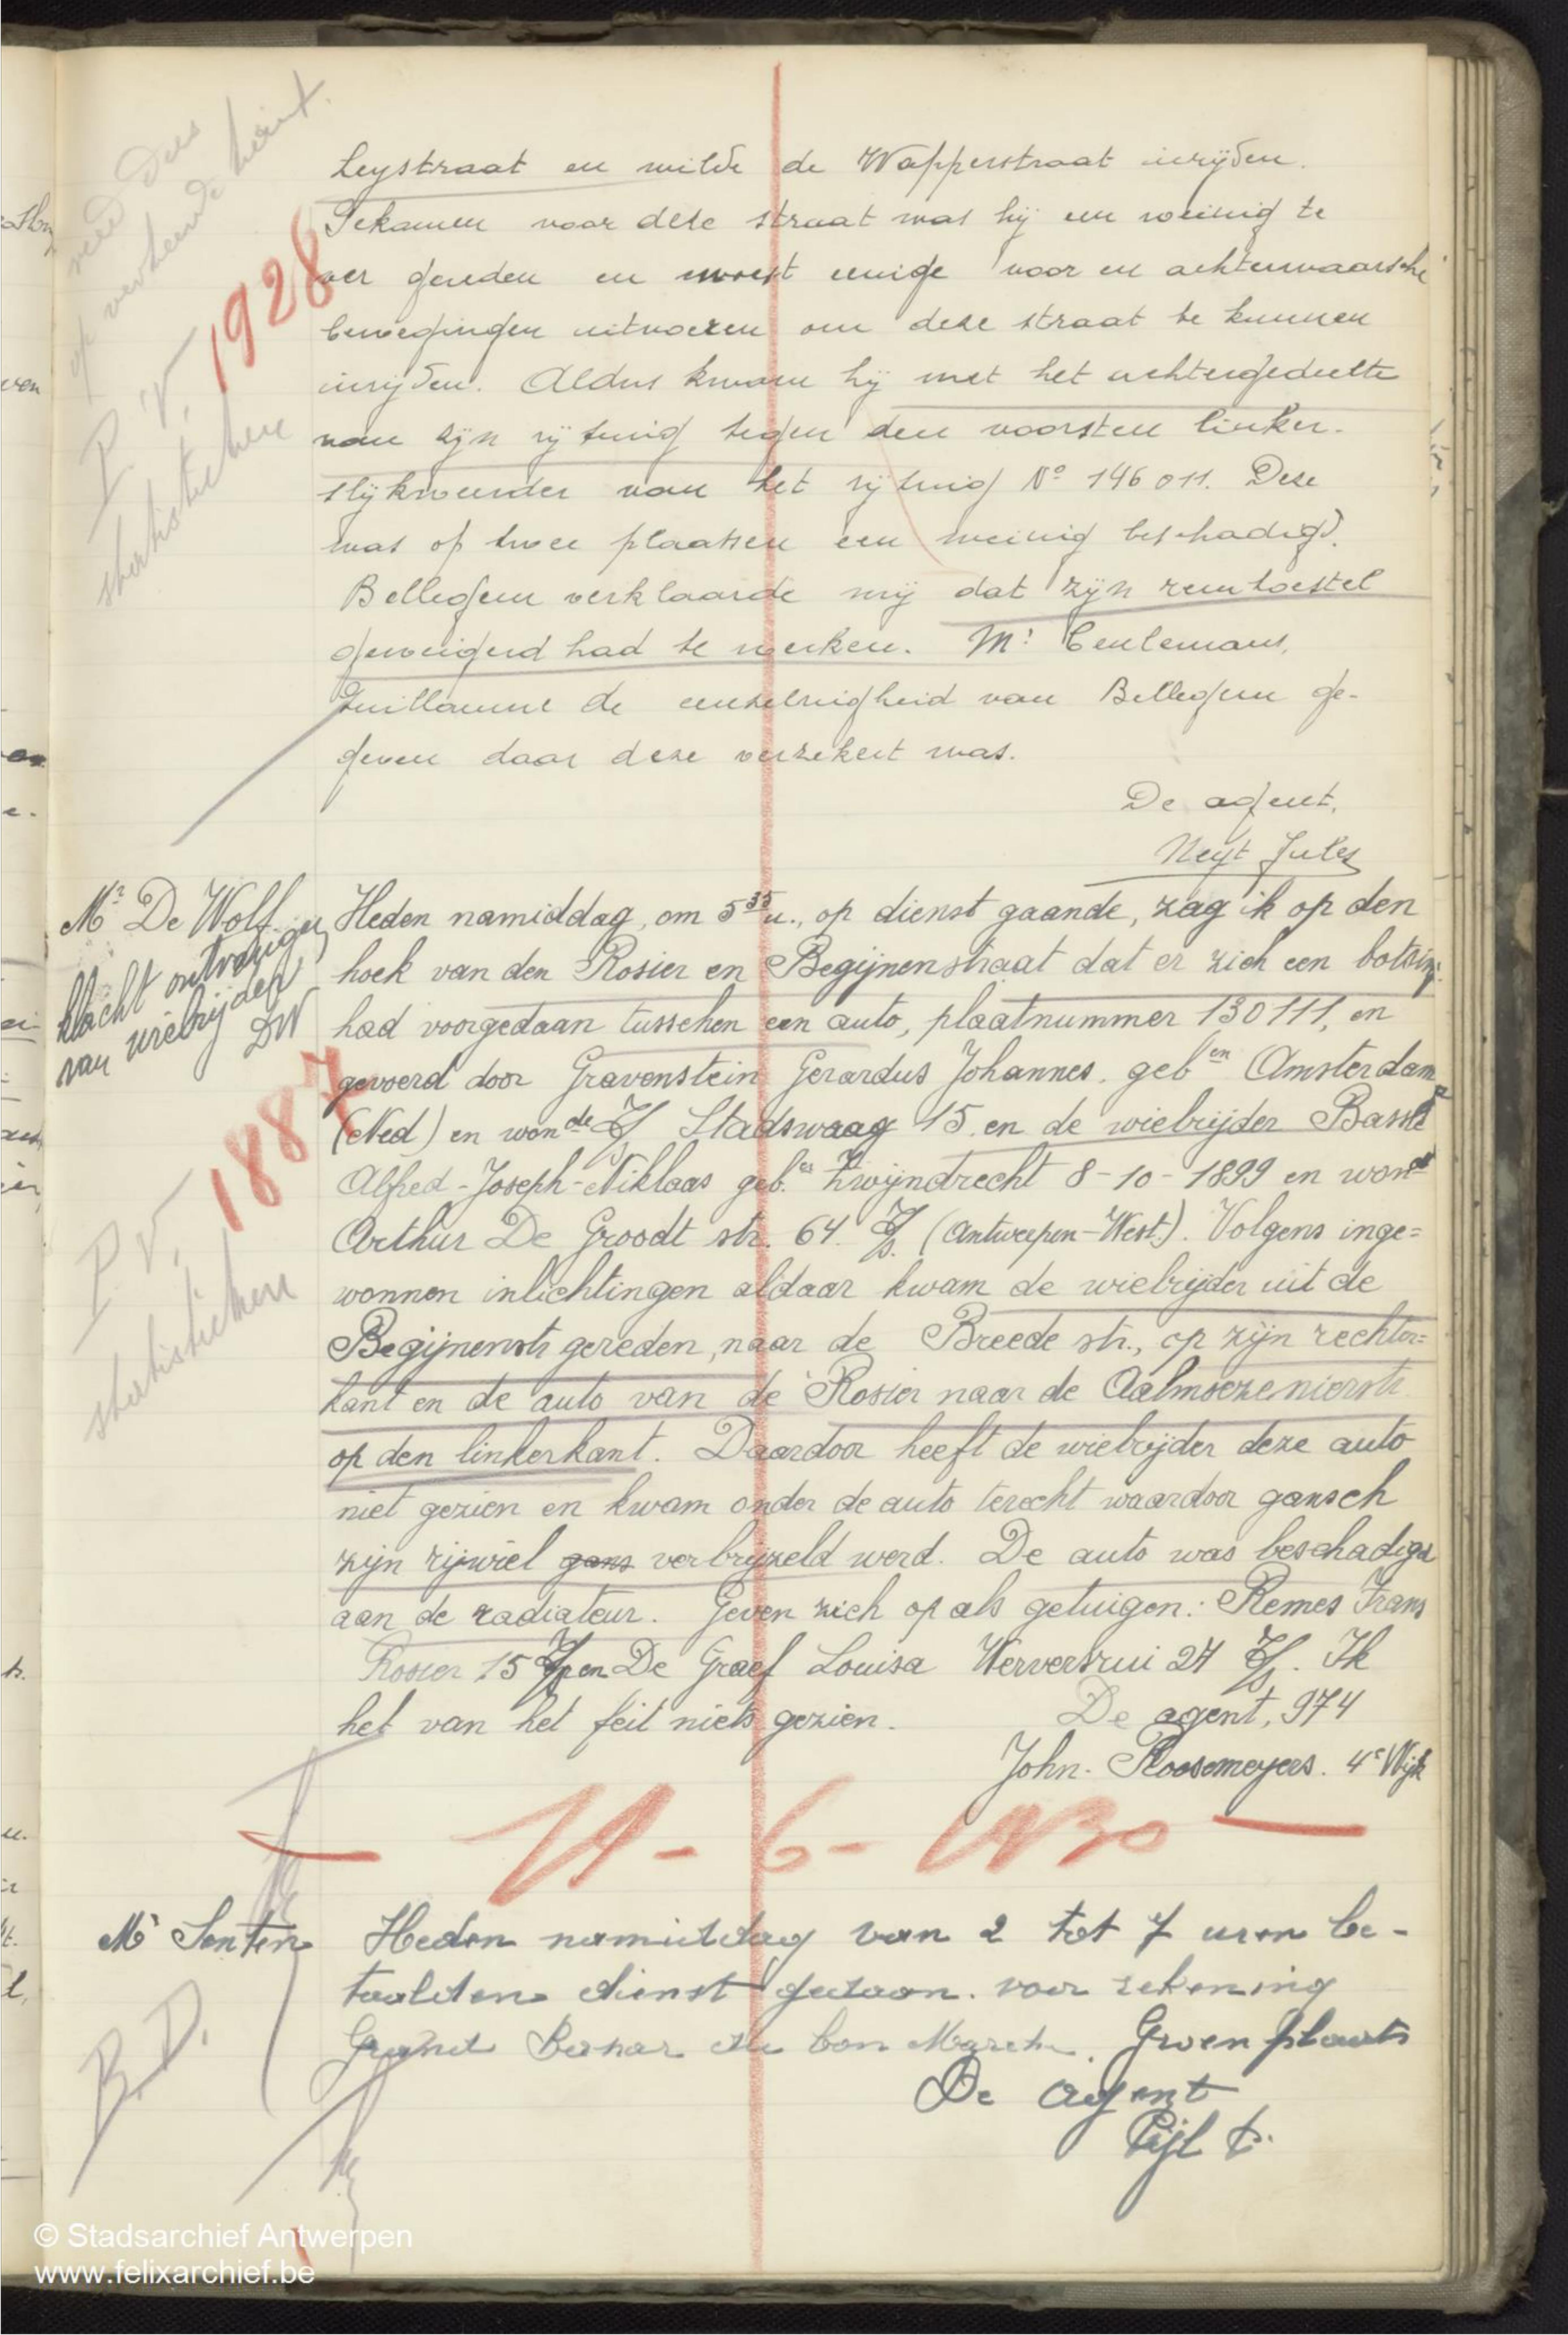 Leystraat en wilde de Wapperstraat inrijden.
Gekomen voor deze straat was hij een weinig te
ver gereden en moest eenige voor en achterwaarsche
bewegingen uitvoeren om deze straat te kunnen
inrijden. Aldus kwam hij met het achtergedeelte
van zijn rijtuig tegen den voorsten linker-
slijkweerder van het rijtuig Nº 146011. Deze
was op twee plaatsen een weinig beschadigd.
Bellegem verklaarde mij dat zijn remtoestel
geweigerd had te werken. Mr Ceulemans,
Guillaume de eenzelvigheid van Bellegem ge-
geven daar deze verzekert was.
De agent,
Neyt Jules
P.V. 1928
Mr De Wolf
klacht ontvangen
van wielrijder
DW
P.V. 1887
Heden namiddag, om 5 35 u., op dienst gaande, zag ik op den
hoek van den Rosier en Begijnenstraat dat er zich een botsing
had voorgedaan tusschen een auto, plaatnummer 130111, en
gevoerd door Gravenstein Gerardus Johannes. geb en Amsterdam
(Ned) en won de Stadswaag 15. en de wielrijder
Alfred-Joseph-Niklaas geb. en Zwijndrecht 8-10-1899 en won de
Arthur De Groodt str. 64. (Antwerpen-West.). Volgens inge=
wonnen inlichtingen aldaar kwam de wielrijder uit de
Begijnenstr gereden, naar de Breede str., op zijn rechter=
kant en de auto van de Rosier naar de Aalmoezenierstr
op den linkerkant. Daardoor heeft de wielrijder deze auto
niet gezien en kwam onder de auto terecht waardoor gansch
zijn rijwiel gans verbrijzeld werd. De auto was beschadigd
aan de radiateur. Geven zich op als getuigen: Remes Frans
Rosier 15 en De Graef Louisa Ververrui 27. Ik
heb van het feit niets gezien. De agent, 974
John. Roosemeyers. 4e Wijk
- 21 - 6 - 1930 -
Mr Senten
B.D.
Heden namiddag van 2 tot 7 uren be-
taalden dienst gedaan. voor rekening
Grand Bazar du bon March. Groenplaats
De agent
Pijl
© Stadsarchief Antwerpen
www.felixarchief.be